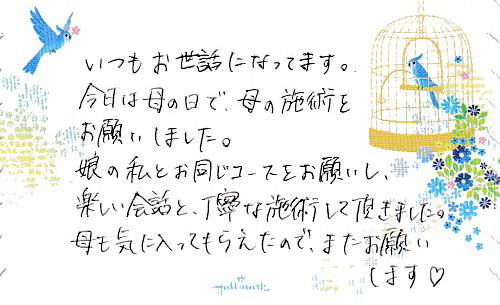 いつもお世話になってます。
今日は母の日で、母の施術を
お願いしました。
娘の私とお同じコースをお願いし、
楽しい会話と、丁寧な施術して頂きました。
母も気に入ってもらえたので、またお願い
します♡
Hallmark